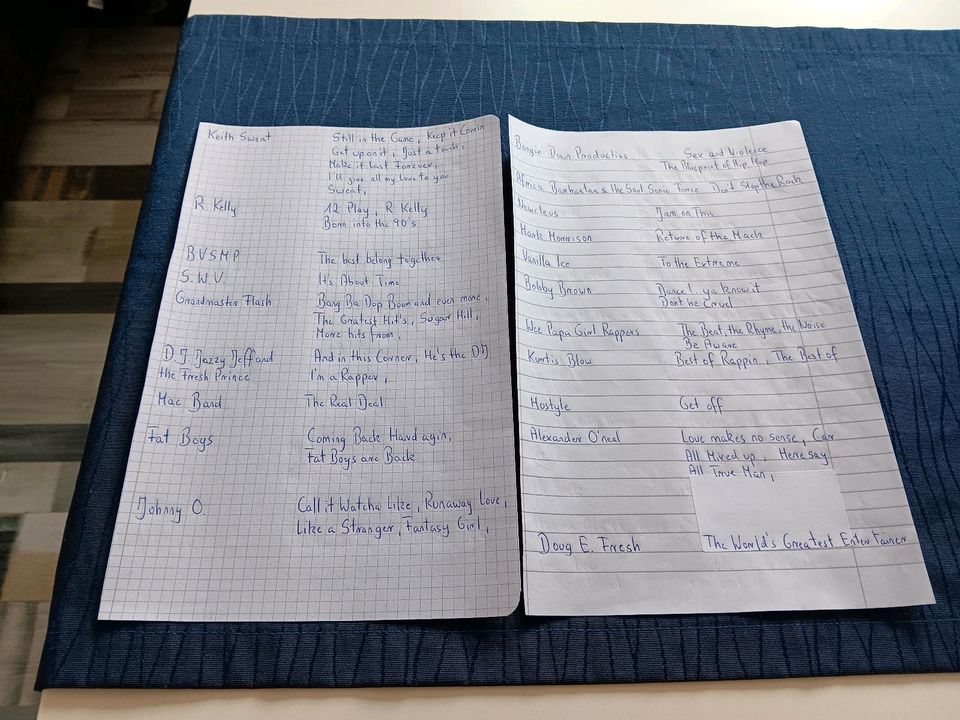 Keith Sweat Still in the Game, Keep it Comin
Get up on it, Just a touch,
Make it Last Forever,
I'll give all my Love to you
Sweat,
R. Kelly 12 Play, R Kelly
Born into the 90's
BVSMP The best belong together
S.W.V. It's About Time
Grandmaster Flash Bang Ba Dop Boom and even more,
The Gratest Hit's, Sugar Hill,
More hits from,
D.J. Jazzy Jeff and And in this Corner, He's the DJ
the Fresh Prince I'm a Rapper,
Mac Band The Real Deal
Fat Boys Coming Back Hard agin,
Fat Boys are Back
Johnny O. Call it Watcha Like, Runaway Love,
Like a Stranger, Fantasy Girl,
Boogie Down Productivs Sex and Violence
The Blueprint of Hip Hop
Africa Bambaataa & the Soul Sonic force Don't Stop the Rock
Newcleus Jam on This
Mark Morrison Return of the Mack
Vanilla Ice To the Extreme
Bobby Brown Dance!.. ya know it
Dont be Cruel
Wee Papa Girl Rappers The Beat, the Rhyme, the Noise
Be Aware
Kurtis Blow Best of Rappin, The Best of
Mostyle Get off
Alexander O'neal Love makes no sense,
All Mixed up, Heresay
All True Man,
Doug E. Fresh The World's Greatest Entertainer